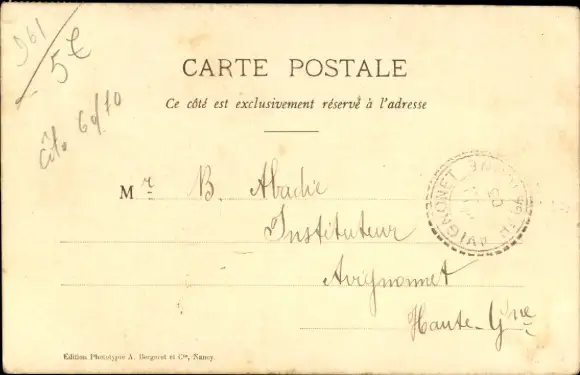 D61
5€
côte 60/70
CARTE POSTALE
Ce côté est exclusivement réservé à l'adresse
Mr B. Abadie
Instituteur
Avignonnet
Haute-Gne
AVIGNONET
Édition Phototypie A. Bergeret et Cie, Nancy.